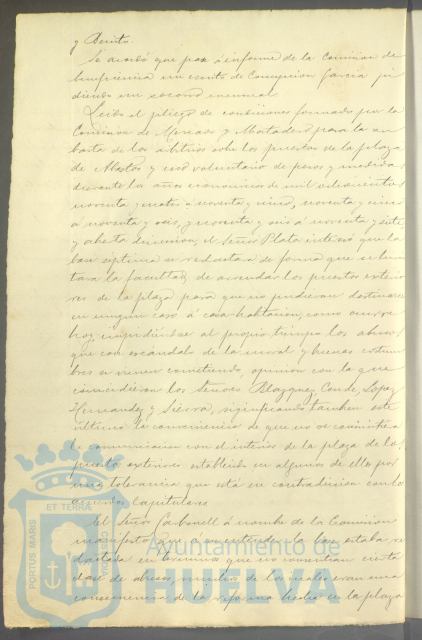 y Benito.
Se acordó que pase á informe de la Comision de
Beneficencia un escrito de Concepcion Garcia pi
diendo un socorro mensual
Leido el pliego de condiciones formado por la
Comision de Mercado y Matadero para la su
basta de los arbitrios sobre los puestos de la plaza
de Abastos y uso voluntario de pesos y medidas
durante los años economicos de mil ochocientos
noventa y cuatro á noventa y cinco, noventa y cinco
á noventa y seis, y noventa y seis á noventa y siete
y abierta discusion, el Señor Plata intereso que la
base séptima se redactara de forma que se limi
tara la facultad de arrendar los puestos exterio
res de la plaza para que no pudieran destinarse
en ningun caso á casa-habitacion, como ocurre
hoy, impidiendose al propio tiempo los abusos
que con escándalo de la moral y buenas costum
bres se vienen cometiendo, opinion con la que
coincidieron los Señores Blazquez, Conde, Lopez
Hernandez y Sierra, significando tambien este
último la conveniencia de que no se consintiera
la comunicacion con el interior de la plaza de los
puestos exteriores establecida en algunos de ellos por
una tolerancia que está en contradiccion con los
acuerdos Capitulares
El Señor Carbonell á nombre de la Comision
manifestó que á su entender la base estaba re
dactada en terminos que no consentian cierta
clase de abusos, muchos de los cuales eran una
consecuencia de la reforma hecha en la plaza
PORTUS MARIS
ET TERRÆ
CUSTODIA
Ayuntamiento de
HUELVA